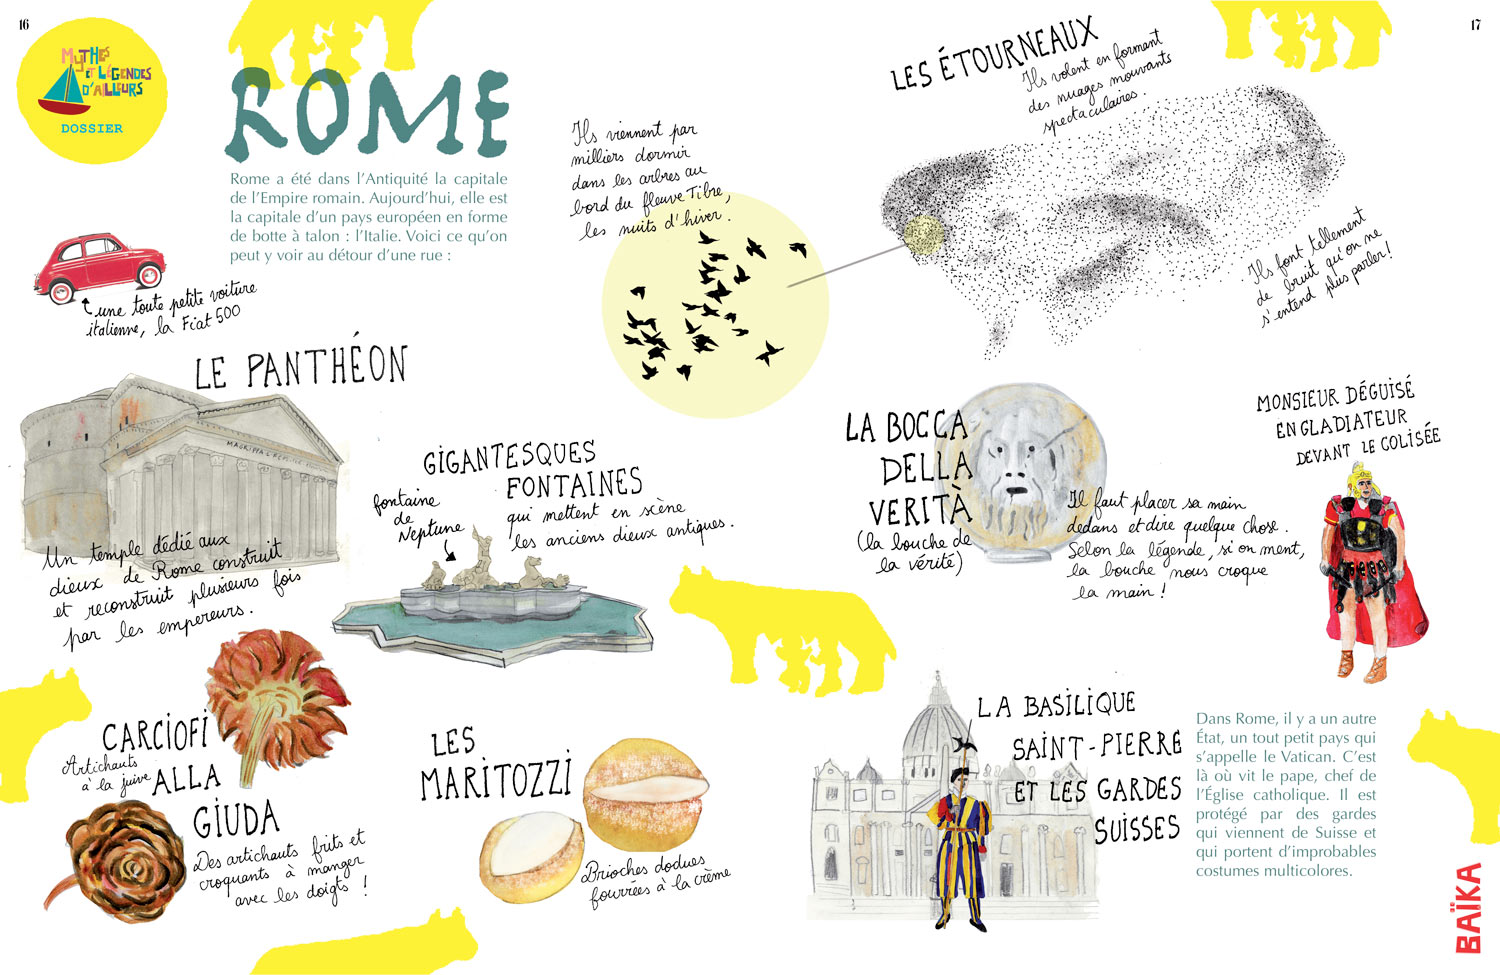 16
MYTHES
ET LÉGENDES
D'AILLEURS
DOSSIER
ROME
Rome a été dans l'Antiquité la capitale
de l'Empire romain. Aujourd'hui, elle est
la capitale d'un pays européen en forme
de botte à talon : l'Italie. Voici ce qu'on
peut y voir au détour d'une rue :
une toute petite voiture
italienne, la Fiat 500
LE PANTHÉON
Un temple dédié aux
dieux de Rome construit
et reconstruit plusieurs fois
par les empereurs.
GIGANTESQUES
FONTAINES
qui mettent en scène
les anciens dieux antiques.
fontaine
de
Neptune
CARCIOFI
ALLA
GIUDA
Artichauts
à la juive
Des artichauts frits et
croquants à manger
avec les doigts !
LES
MARITOZZI
Brioches dodues
fourrées à la crème
17
LES ÉTOURNEAUX
Ils volent en formant
des nuages mouvants
spectaculaires.
Ils viennent par
milliers dormir
dans les arbres au
bord du fleuve Tibre,
les nuits d'hiver.
Ils font tellement
de bruit qu'on ne
s'entend plus parler!
LA BOCCA
DELLA
VERITÀ
(la bouche de
la vérité)
Il faut placer sa main
dedans et dire quelque chose.
Selon la légende, si on ment,
la bouche nous croque
la main !
MONSIEUR DÉGUISÉ
EN GLADIATEUR
DEVANT LE COLISÉE
LA BASILIQUE
SAINT-PIERRE
ET LES GARDES
SUISSES
Dans Rome, il y a un autre
État, un tout petit pays qui
s'appelle le Vatican. C'est
là où vit le pape, chef de
l'Église catholique. Il est
protégé par des gardes
qui viennent de Suisse et
qui portent d'improbables
costumes multicolores.
BAÏKA